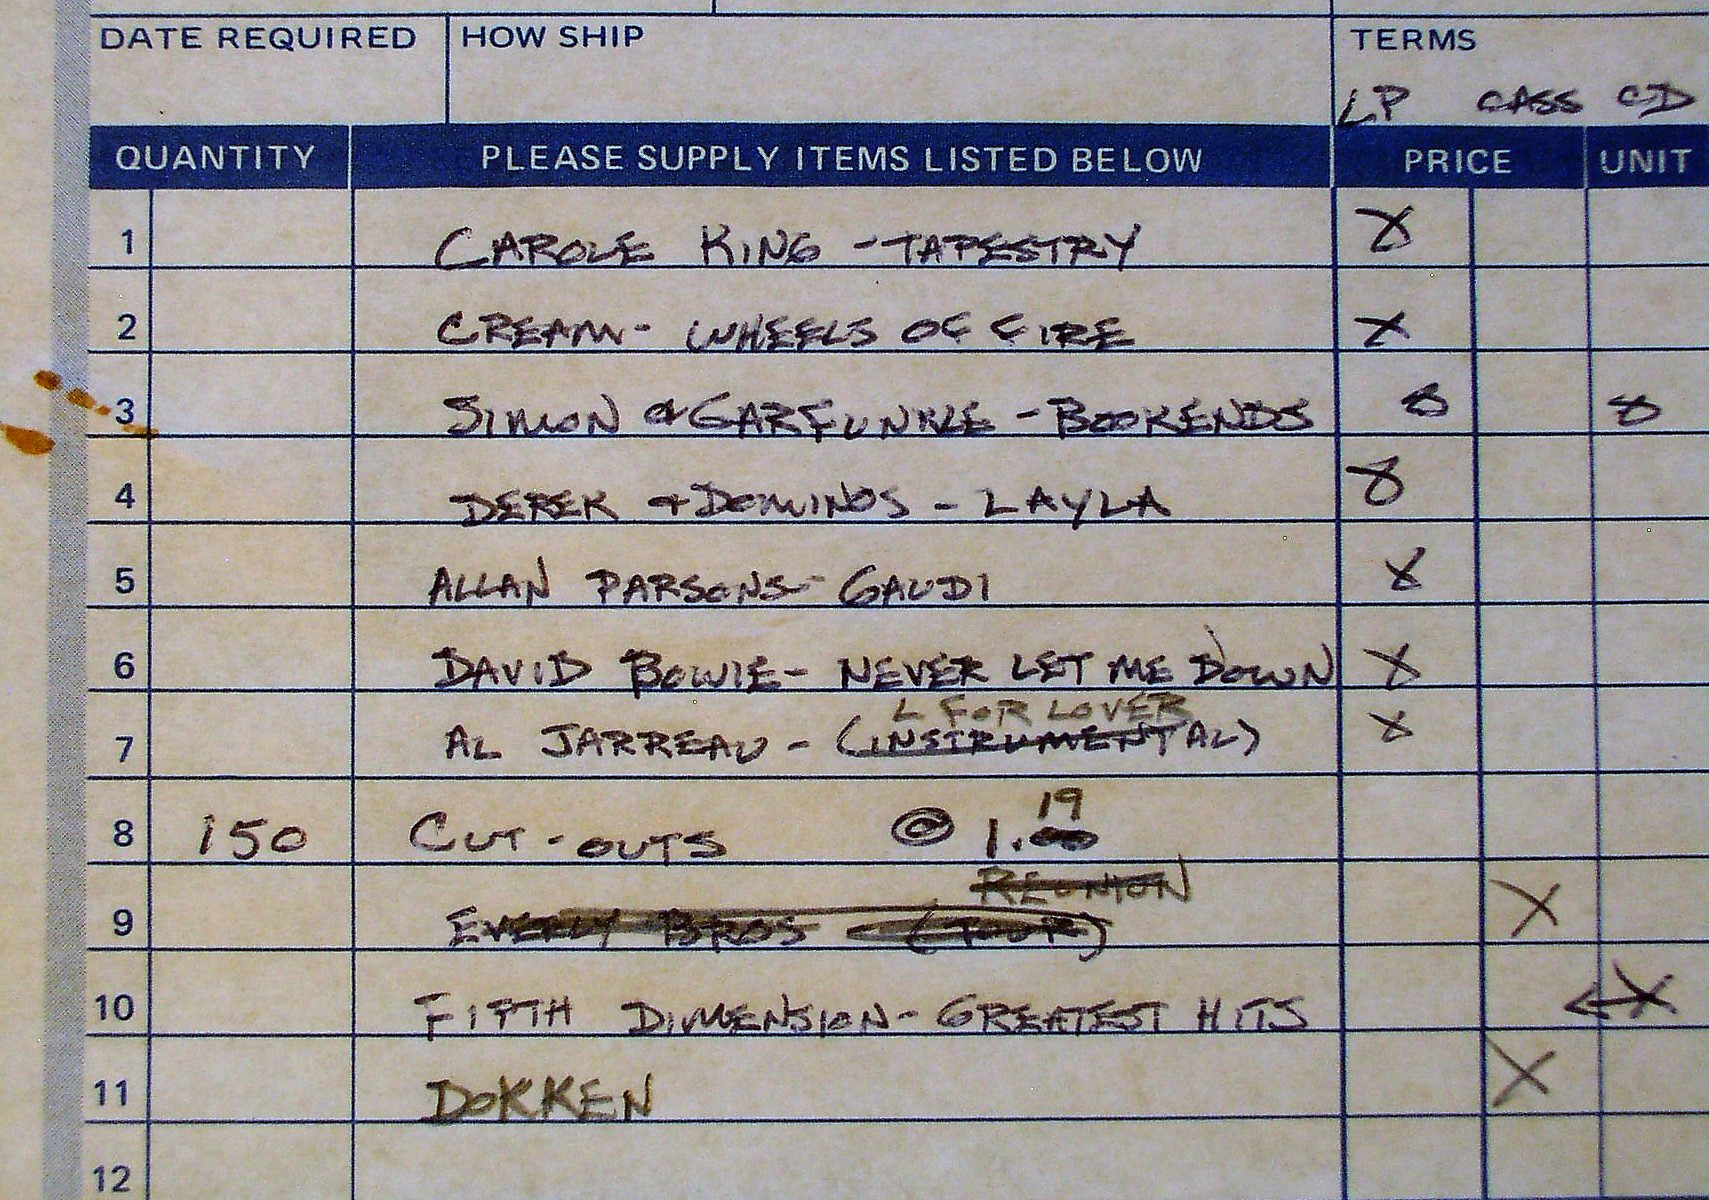 DATE REQUIRED HOW SHIP TERMS
LP CASS CD
QUANTITY PLEASE SUPPLY ITEMS LISTED BELOW PRICE UNIT
1 CAROLE KING - TAPESTRY X
2 CREAM - WHEELS OF FIRE X
3 SIMON & GARFUNKLE - BOOKENDS X X
4 DEREK + DOMINOS - LAYLA X
5 ALLAN PARSONS - GAUDI X
6 DAVID BOWIE - NEVER LET ME DOWN X
L FOR LOVER
7 AL JARREAU - (INSTRUMENTAL) X
19
8 150 CUT-OUTS @ 1.
REUNION
9 EVERLY BROS (TOUR) X
10 FIFTH DIMENSION - GREATEST HITS X
11 DOKKEN X
12